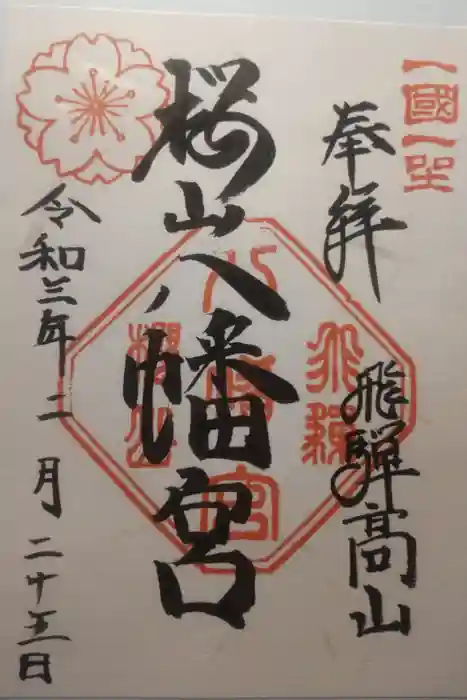 一國一社
奉拝
飛騨高山
桜山八幡宮
飛騨
八幡宮
櫻山
令和三年二月二十五日